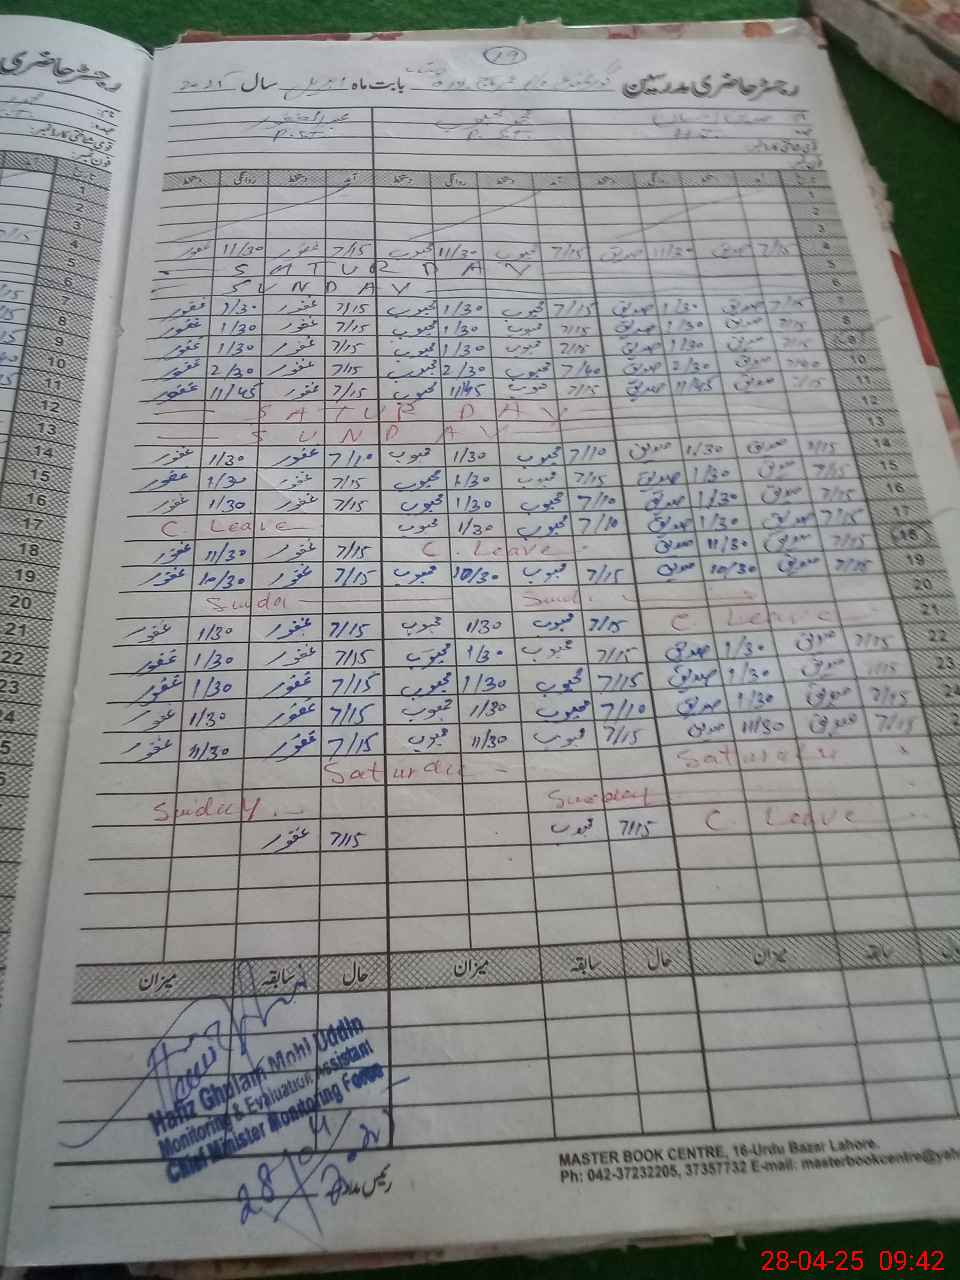 19
رجسٹر حاضری مدرسین بابت ماہ اپریل سال
رجسٹر حاضری
نام
عہدہ P.S.T. P.S.T.
قومی شناختی کارڈ نمبر
فون نمبر
تاریخ آمد دستخط روانگی دستخط آمد دستخط روانگی دستخط آمد دستخط روانگی دستخط
1
2
3
4 7/15 صدیق 11/30 صدیق 7/15 محبوب 11/30 محبوب 7/15 غفور 11/30 غفور
5 SATURDAY
6 SUNDAY
7 7/15 صدیق 1/30 صدیق 7/15 محبوب 1/30 محبوب 7/15 غفور 1/30 غفور
8 7/15 صدیق 1/30 صدیق 7/15 محبوب 1/30 محبوب 7/15 غفور 1/30 غفور
9 7/15 صدیق 1/30 صدیق 7/15 محبوب 1/30 محبوب 7/15 غفور 1/30 غفور
10 7/40 صدیق 2/30 صدیق 7/40 محبوب 2/30 محبوب 7/15 غفور 2/30 غفور
11 7/15 صدیق 11/45 صدیق 7/15 محبوب 11/45 محبوب 7/15 غفور 11/45 غفور
12 SATURDAY
13 SUNDAY
14 7/15 صدیق 1/30 صدیق 7/10 محبوب 1/30 محبوب 7/10 غفور 1/30 غفور
15 7/15 صدیق 1/30 صدیق 7/15 محبوب 1/30 محبوب 7/15 غفور 1/30 غفور
16 7/15 صدیق 1/30 صدیق 7/10 محبوب 1/30 محبوب 7/15 غفور 1/30 غفور
17 7/15 صدیق 1/30 صدیق 7/10 محبوب 1/30 محبوب C. Leave
18 7/15 صدیق 11/30 صدیق C. Leave 7/15 غفور 11/30 غفور
19 7/15 صدیق 10/30 صدیق 7/15 محبوب 10/30 محبوب 7/15 غفور 10/30 غفور
20 Sund. Sunda
21 C. Leave 7/15 محبوب 1/30 محبوب 7/15 غفور 1/30 غفور
22 7/15 صدیق 1/30 صدیق 7/15 محبوب 1/30 محبوب 7/15 غفور 1/30 غفور
23 7/15 صدیق 1/30 صدیق 7/15 محبوب 1/30 محبوب 7/15 غفور 1/30 غفور
24 7/15 صدیق 1/30 صدیق 7/10 محبوب 1/30 محبوب 7/15 غفور 1/30 غفور
7/15 صدیق 11/30 صدیق 7/15 محبوب 11/30 محبوب 7/15 غفور 11/30 غفور
Saturday Saturda
Sunday Sunday
C. Leave 7/15 محبوب 7/15 غفور
حال سابقہ میزان حال سابقہ میزان حال سابقہ میزان
Hafiz Ghulam Mohi Uddin
Monitoring & Evaluation Assistant
Chief Minister Monitoring Force
28/04/2025
رئیس مدرسہ
MASTER BOOK CENTRE, 16-Urdu Bazar Lahore.
Ph: 042-37232205, 37357732 E-mail: masterbookcentre@yah
28-04-25 09:42